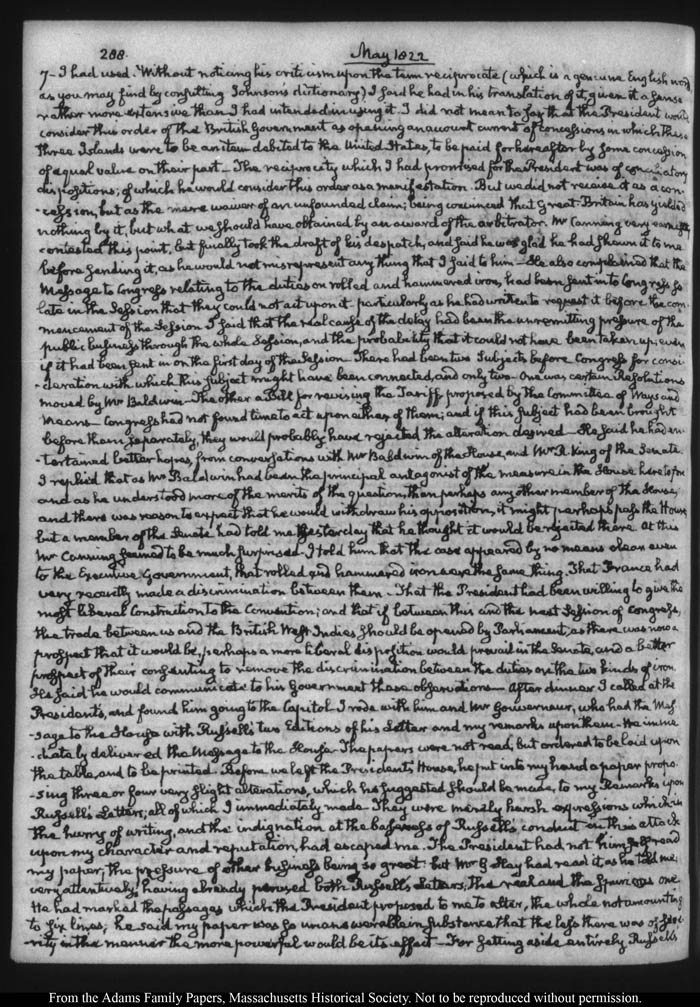 288.
May 1822
7 – I had used. Without noticing his criticism upon the term reciprocate (which is a genuine English word
as you may find by consulting Johnson's dictionary) I said he had in his translation of it, given it a sense
rather more extensive than I had intended in using it. I did not mean to say that the President would
consider this order of the British Government as opening an account current of concessions in which these
three Islands were to be an item debited to the United States, to be paid for hereafter by some concession
of equal value on their part – The reciprocity which I had promised for the President was of conciliatory
dispositions; of which he would consider this order as a manifestation. But we did not receive it as a con-
-cession, but as the mere waiver of an unfounded claim; being convinced that Great-Britain has yielded
nothing by it, but what we should have obtained by an award of the arbitrator. Mr Canning very earnestly
contested this point, but finally took the draft of his despatch, and said he was glad he had shewn it to me
before sending it, as he would not misrepresent any thing that I said to him – He also complained that the
Message to Congress relating to the duties on rolled and hammered iron, had been sent into Congress so
late in the Session that they could not act upon it. particularly as he had written to request it before the com-
mencement of the Session. I said that the real cause of the delay had been the unremitting pressure of the
public business through the whole Session, and the probability that it could not have been taken up, even
if it had been sent in on the first day of the Session. There had been two Subjects before Congress for consi-
-deration with which this subject might have been connected, and only two – One was certain Resolutions
moved by Mr Baldwin – The other a Bill for revising the Tariff, proposed by the Committee of Ways and
Means – Congress had not found time to act upon either of them; and if this subject had been brought
before them separately, they would probably have rejected the alteration desired – He said he had en-
-tertained better hopes, from conversations with Mr Baldwin of the House, and Mr R. King of the Senate.
I replied that as Mr Baldwin had been the principal antagonist of the measure in the House heretofore
and as he understood more of the merits of the question, than perhaps any other member of the House,
and there was reason to expect that he would withdraw his opposition, it might perhaps pass the House
but a member of the Senate had told me yesterday that he thought it would be rejected there. At this
Mr Canning seemed to be much surprised – I told him that the case appeared by no means clear even
to the Executive Government, that rolled and hammered iron were the same thing. That France had
very recently made a discrimination between them – That the President had been willing to give the
most liberal Construction to the Convention; and that if between this and the next Session of Congress,
the trade between us and the British West-Indies should be opened by Parliament, as there was now a
prospect that it would be, perhaps a more liberal disposition would prevail in the Senate, and a better
prospect of their consenting to remove the discrimination between the duties on the two kinds of iron.
He said he would communicate to his Government these observations – After dinner I called at the
President's, and found him going to the Capitol. I rode with him and Mr Gouverneur, who had the Mes-
-sage to the House with Russell's two Editions of his Letter and my remarks upon them – He imme
-diately delivered the Message to the House. The papers were not read, but ordered to be laid upon
the table, and to be printed. Before we left the President's House, he put into my hand a paper propo-
-sing three or four very slight alterations, which he suggested should be made, to my Remarks upon
Russell's Letters; all of which I immediately made. They were merely harsh expressions which in
the hurry of writing, and the indignation at the baseness of Russell's conduct in this attack
upon my character and reputation, had escaped me. The President had not himself read
my paper; the pressure of other business being so great: but Mr G. Hay had read it as he told me,
very attentively; having already perused both Russell's Letters, the real and the spurious one.
He had marked the passages which the President proposed to me to alter, the whole not amounting
to six lines; he said my paper was so unanswerable in substance that the less there was of aspe-
-rity in the manner the more powerful would be its effect – For setting aside entirely Russell's
From the Adams Family Papers, Massachusetts Historical Society. Not to be reproduced without permission.